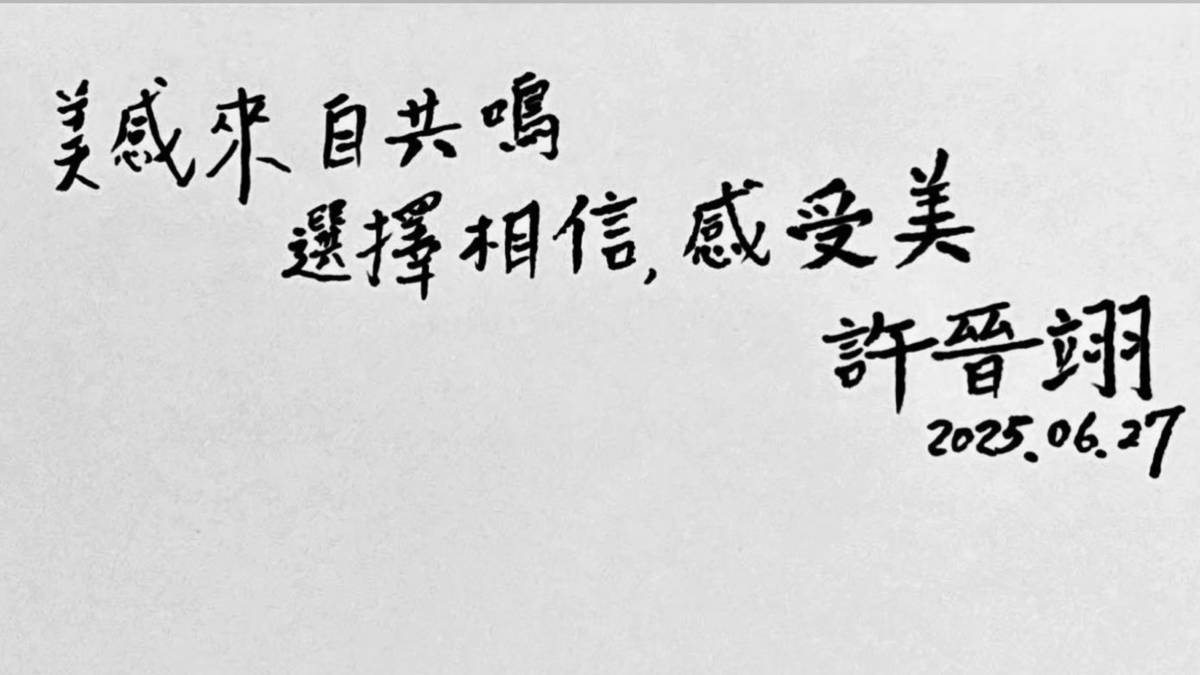 美感來自共鳴
選擇相信,感受美
許晉翊
2025.06.27